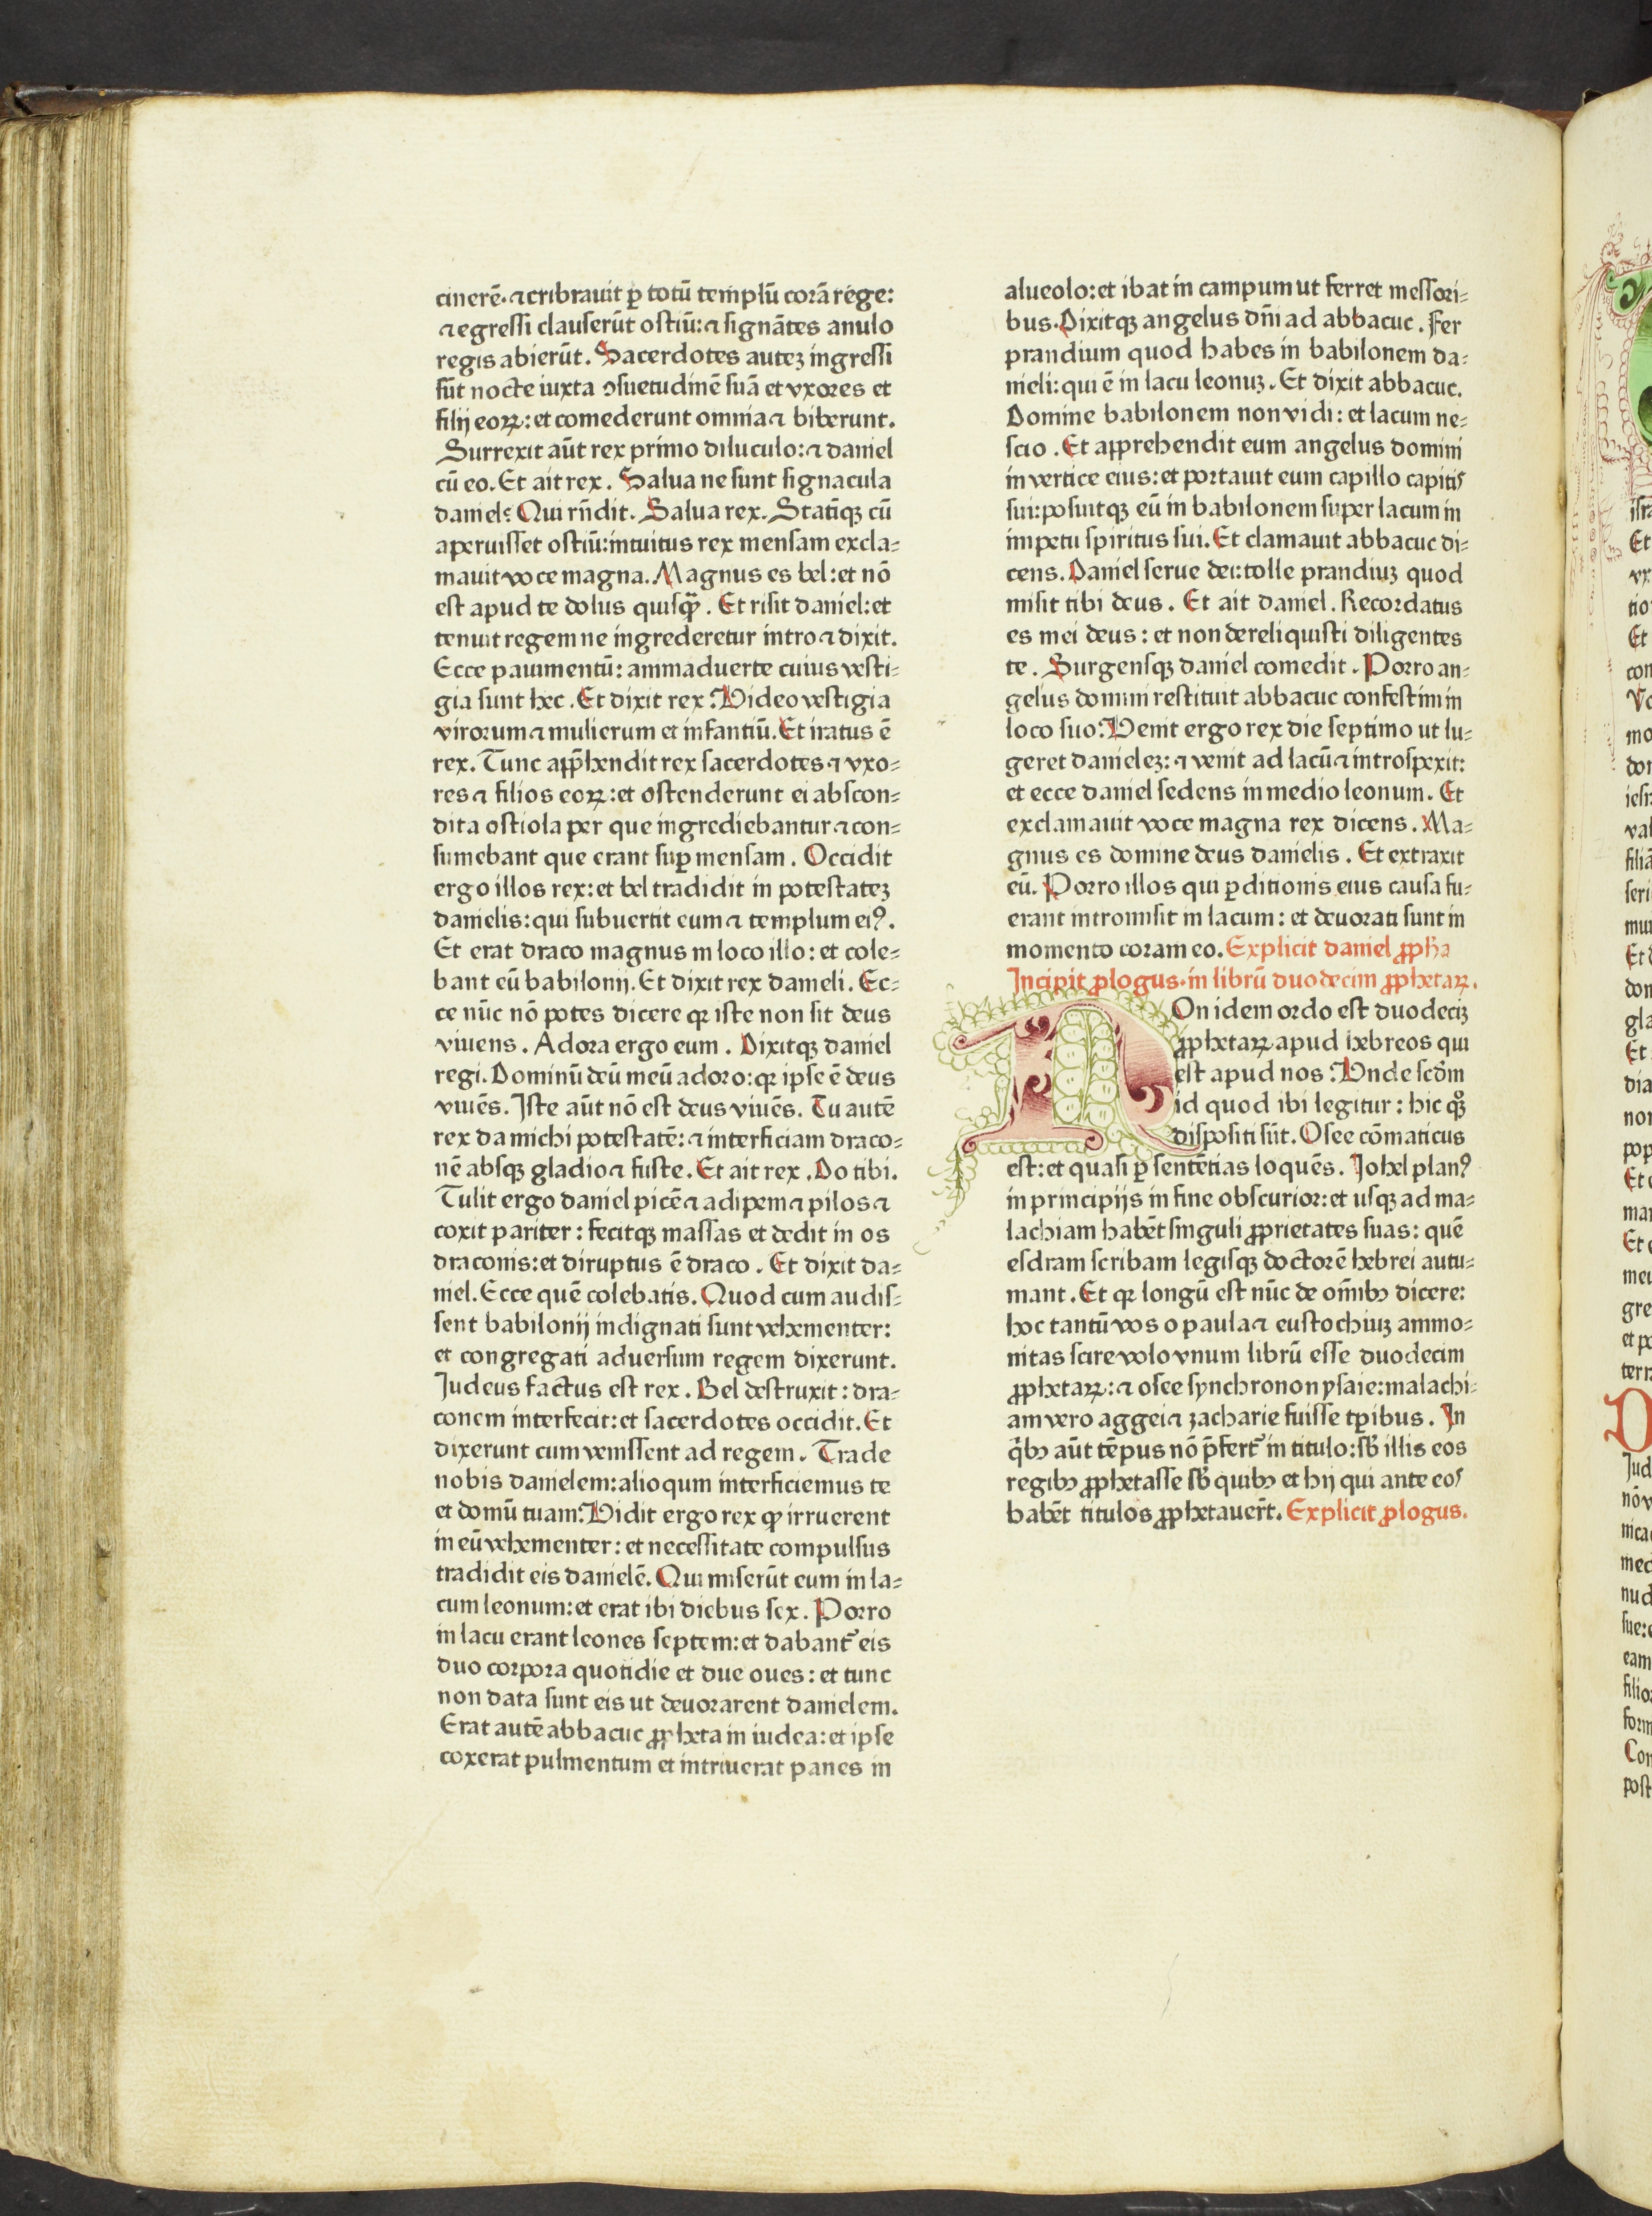 cinerē· ⁊ cribrauit ꝑ totū templū corā rege:
⁊ egressi clauserūt ostiū: ⁊ signātes anulo
regis abierūt. Sacerdotes autez ingressi
sūt nocte iuxta ↄsuetudinē suā et vxores et
filij eoꝝ: et comederunt omnia ⁊ biberunt.
Surrexit aūt rex primo diluculo: ⁊ daniel
cū eo. Et ait rex. Salua ne sunt signacula
daniel: Qui rn̄dit. Salua rex. Statiq̄ꝫ cū
aperuisset ostiū: intuitus rex mensam excla⸗
mauit voce magna. Magnus es bel: et nō
est apud te dolus quisꝙ̄. Et risit daniel: et
tenuit regem ne ingrederetur intro ⁊ dixit.
Ecce pauimentū: animaduerte cuius vesti⸗
gia sunt hec. Et dixit rex. Video vestigia
virorum ⁊ mulierum et infantiū. Et iratus ē
rex. Tunc app̄hendit rex sacerdotes ⁊ vxo⸗
res ⁊ filios eoꝝ: et ostenderunt ei abscon⸗
dita ostiola per que ingrediebantur ⁊ con⸗
sumebant que erant suꝑ mensam. Occidit
ergo illos rex: et bel tradidit in potestatez
danielis: qui subuertit eum ⁊ templum eiꝰ.
Et erat draco magnus in loco illo: et cole⸗
bant eū babilonij. Et dixit rex danieli. Ec⸗
ce nūc nō potes dicere qꝛ iste non sit deus
viuens. Adora ergo eum. Dixitqꝫ daniel
regi. Dominū deū meū adoro: qꝛ ipse ē deus
viuēs. Iste aūt nō est deus viuēs. Tu autē
rex da michi potestatē: ⁊ interficiam draco⸗
nē absqꝫ gladio ⁊ fuste. Et ait rex. Do tibi.
Tulit ergo daniel picē ⁊ adipem ⁊ pilos ⁊
coxit pariter: fecitqꝫ massas et dedit in os
draconis: et diruptus ē draco. Et dixit da⸗
niel. Ecce quē colebatis. Quod cum audis⸗
sent babilonij indignati sunt vehementer:
et congregati aduersum regem dixerunt.
Iudeus factus est rex. Bel destruxit: dra⸗
conem interfecit: et sacerdotes occidit. Et
dixerunt cum venissent ad regem. Trade
nobis danielem: alioqum interficiemus te
et domū tuam. Vidit ergo rex ꝙ irruerent
in eū vehementer: et necessitate compulsus
tradidit eis danielē. Qui miserūt eum in la⸗
cum leonum: et erat ibi diebus sex. Porro
in lacu erant leones septem: et dabant᷑ eis
duo corpora quotidie et due oues: et tunc
non data sunt eis ut deuorarent danielem.
Erat autē abbacuc ꝓpheta in iudea: et ipse
coxerat pulmentum et intriuerat panes in
alueolo: et ibat in campum ut ferret messori⸗
bus. Dixitqꝫ angelus dn̄i ad abbacuc. Fer
prandium quod habes in babilonem da⸗
nieli: qui ē in lacu leonuz. Et dixit abbacuc.
Domine babilonem non vidi: et lacum ne⸗
scio. Et apprehendit eum angelus domini
in vertice eius: et portauit eum capillo capitis
sui: posuitqꝫ eū in babilonem super lacum in
impetu spiritus sui. Et clamauit abbacuc di⸗
cens. Daniel serue dei: tolle prandiuz quod
misit tibi deus. Et ait daniel. Recordatus
es mei deus: et non dereliquisti diligentes
te. Surgensqꝫ daniel comedit. Porro an⸗
gelus domini restituit abbacuc confestim in
loco suo. Venit ergo rex die septimo ut lu⸗
geret danielez: ⁊ venit ad lacū ⁊ introspexit:
et ecce daniel sedens in medio leonum. Et
exclamauit voce magna rex dicens. Ma⸗
gnus es domine deus danielis. Et extraxit
eū. Porro illos qui ꝑditionis eius causa fu⸗
erant intromisit in lacum: et deuorati sunt in
momento coram eo. Explicit daniel ꝓpha
Incipit ꝓlogus· in librū duodecim ꝓphetaꝝ.
NOn idem ordo est duodeciz
ꝓphetaꝝ apud hebreos qui
est apud nos. Vnde scd̄m
id quod ibi legitur: hic qꝫ
dispositi sūt. Osee cōmaticus
est: et quasi ꝑ sentētias loquēs. Iohel planꝰ
in principijs in fine obscurior: et usqꝫ ad ma⸗
lachiam habēt singuli ꝓprietates suas: quē
esdram scribam legisqꝫ doctorē hebrei autu⸗
mant. Et qꝛ longū est nūc de om̄ibꝫ dicere:
hoc tantū vos o paula ⁊ eustochiuz ammo⸗
nitas scire volo vnum librū esse duodecim
ꝓphetaꝝ: ⁊ osee synchronon ysaie: malachi⸗
am vero aggei ⁊ zacharie fuisse tꝑibus. In
q̇bꝫ aūt tēpus nō p̄fert᷑ in titulo: sb̄ illis eos
regibꝫ ꝓphetasse sb̄ quibꝫ et hij qui ante eos
habēt titulos ꝓphetauer̄t. Explicit ꝓlogus.